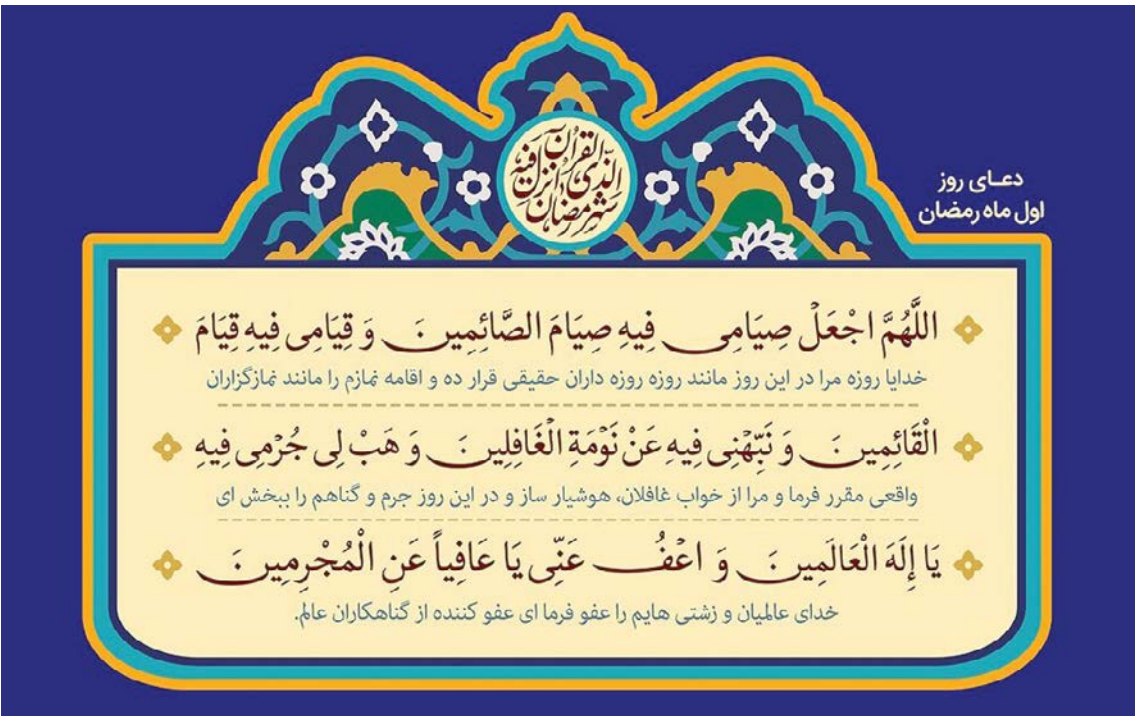 شهر رمضان الذی انزل فیه القرآن
دعای روز
اول ماه رمضان
اللَّهُمَّ اجْعَلْ صِیَامِی فِیهِ صِیَامَ الصَّائِمِینَ وَ قِیَامِی فِیهِ قِیَامَ
خدایا روزه مرا در این روز مانند روزه روزه داران حقیقی قرار ده و اقامه نمازم را مانند نمازگزاران
الْقَائِمِینَ وَ نَبِّهْنِی فِیهِ عَنْ نَوْمَةِ الْغَافِلِینَ وَ هَبْ لِی جُرْمِی فِیهِ
واقعی مقرر فرما و مرا از خواب غافلان، هوشیار ساز و در این روز جرم و گناهم را ببخش ای
یَا إِلَهَ الْعَالَمِینَ وَ اعْفُ عَنِّی یَا عَافِیاً عَنِ الْمُجْرِمِینَ
خدای عالمیان و زشتی هایم را عفو فرما ای عفو کننده از گناهکاران عالم.